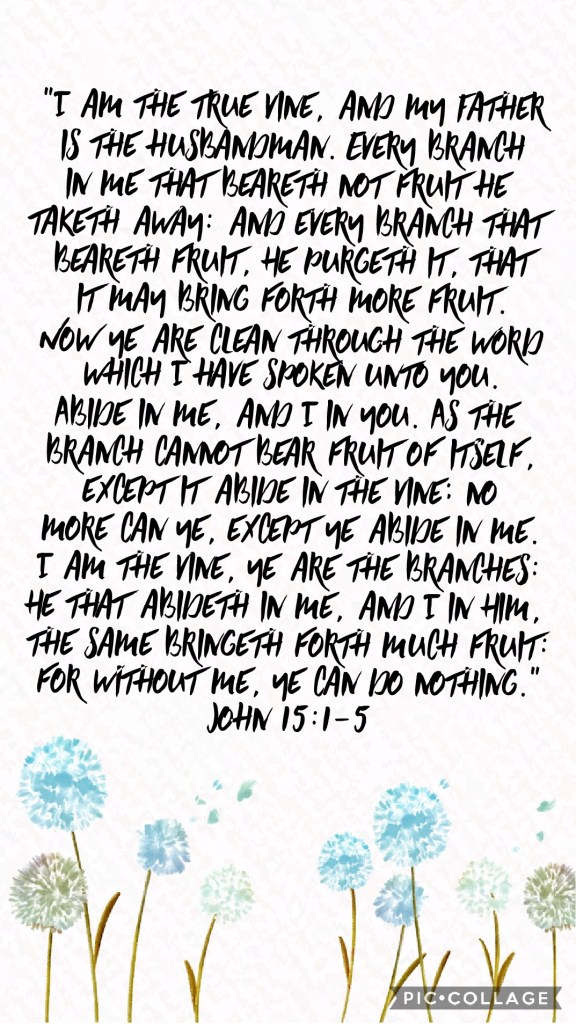 "I AM THE TRUE VINE, AND MY FATHER
IS THE HUSBANDMAN. EVERY BRANCH
IN ME THAT BEARETH NOT FRUIT HE
TAKETH AWAY: AND EVERY BRANCH THAT
BEARETH FRUIT, HE PURGETH IT, THAT
IT MAY BRING FORTH MORE FRUIT.
NOW YE ARE CLEAN THROUGH THE WORD
WHICH I HAVE SPOKEN UNTO YOU.
ABIDE IN ME, AND I IN YOU. AS THE
BRANCH CANNOT BEAR FRUIT OF ITSELF,
EXCEPT IT ABIDE IN THE VINE; NO
MORE CAN YE, EXCEPT YE ABIDE IN ME.
I AM THE VINE, YE ARE THE BRANCHES:
HE THAT ABIDETH IN ME, AND I IN HIM,
THE SAME BRINGETH FORTH MUCH FRUIT:
FOR WITHOUT ME, YE CAN DO NOTHING."
JOHN 15:1-5
PIC•COLLAGE